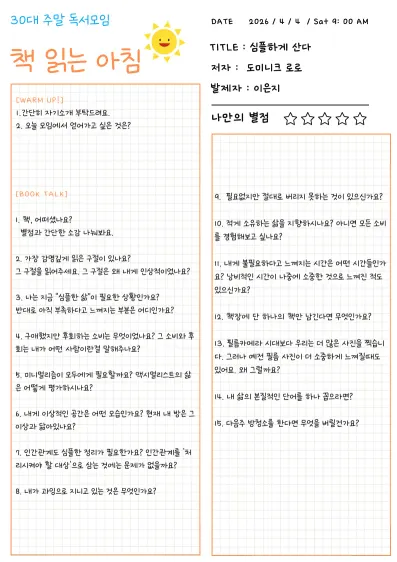 30대 주말 독서모임
책 읽는 아침
DATE 2026 / 4 / 4 / Sat 9: 00 AM
TITLE : 심플하게 산다
저자 : 도미니크 로로
발제자 : 이은지
나만의 별점 ☆☆☆☆☆
[WARM UP!]
1.간단히 자기소개 부탁드려요.
2. 오늘 모임에서 얻어가고 싶은 것은?
[BOOK TALK]
1. 책, 어떠셨나요?
별점과 간단한 소감 나눠봐요.
2. 가장 감명깊게 읽은 구절이 있나요?
그 구절을 읽어주세요. 그 구절은 왜 내게 인상적이었나요?
3. 나는 지금 "심플한 삶"이 필요한 상황인가요?
반대로 아직 부족하다고 느껴지는 부분은 어디인가요?
4. 구매했지만 후회하는 소비는 무엇이었나요? 그 소비와 후
회는 내가 어떤 사람이란걸 말해주나요?
5. 미니멀리즘이 모두에게 필요할까요? 맥시멀리스트의 삶
은 어떻게 평가하시나요?
6. 내게 이상적인 공간은 어떤 모습인가요? 현재 내 방은 그
이상과 닮아있나요?
7. 인간관계도 심플한 정리가 필요한가요? 인간관계를 '처
리시켜야 할 대상'으로 삼는 것에는 문제가 없을까요?
8. 내가 과잉으로 지니고 있는 것은 무엇인가요?
9. 필요없지만 절대로 버리지 못하는 것이 있으신가요?
10. 적게 소유하는 삶을 지향하시나요? 아니면 모든 소비
를 경험해보고 싶나요?
11. 내게 불필요하다고 느껴지는 시간은 어떤 시간들인가
요? 낭비적인 시간이 나중에 소중한 것으로 느껴진 적도
있으신가요?
12. 책장에 단 하나의 책만 남긴다면 무엇인가요?
13. 필름카메라 시대보다 우리는 더 많은 사진을 찍습니
다. 그러나 예전 필름 사진이 더 소중하게 느껴질때도
있어요. 왜 그럴까요?
14. 내 삶의 본질적인 단어를 하나 꼽으라면?
15. 다음주 방청소를 한다면 무엇을 버릴건가요?